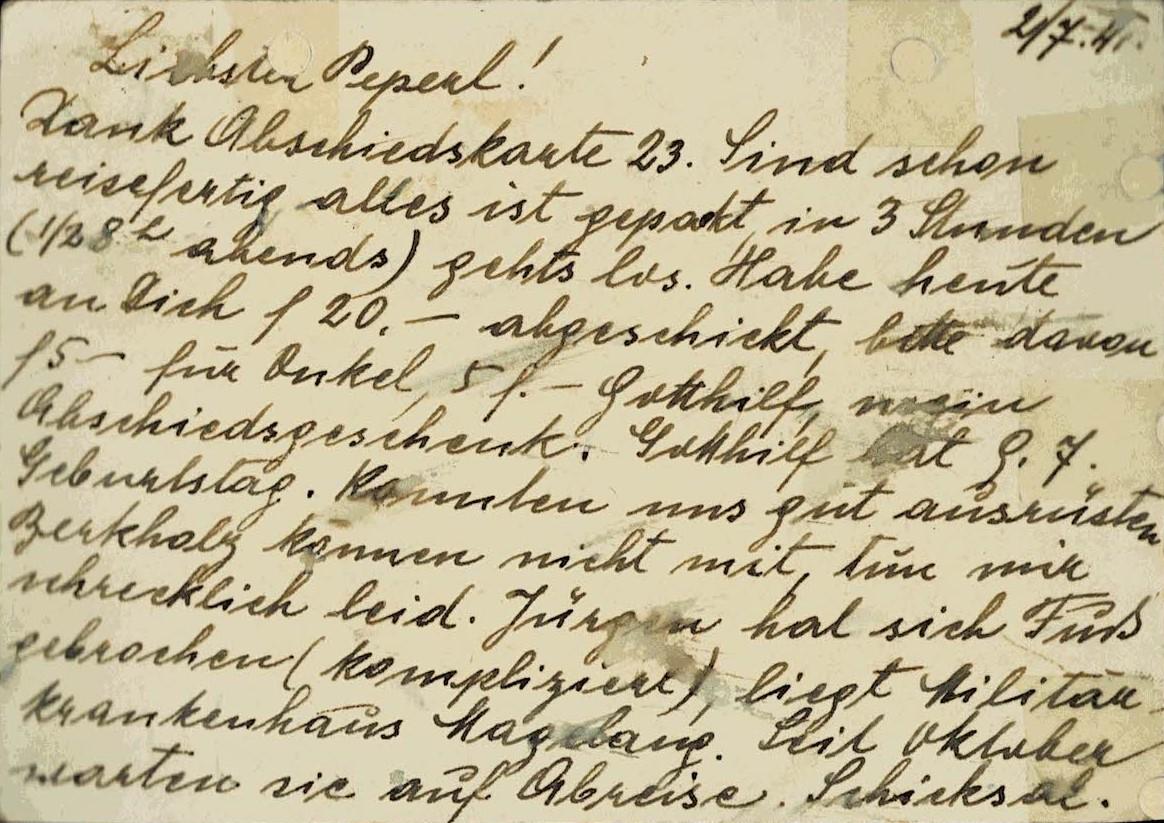 2/7.41.
Liebster Peperl!
Dank Abschiedskarte 23. Sind schon
reisefertig alles ist gepackt, in 3 Stunden
(1/2 8h abends) gehts los. Habe heute
an Dich f 20.— abgeschickt, bitte davon
f 5— für Onkel, 5 f.— Gotthilf, mein
Abschiedsgeschenk. Gotthilf hat 9. 7.
Geburtstag. Konnten uns gut ausrüsten
Berkholz können nicht mit, tun mir
schrecklich leid. Jürgen hat sich Fuß
gebrochen (kompliziert), liegt Militär
krankenhaus Magelang. Seit Oktober
warten sie auf Abreise. Schicksal.